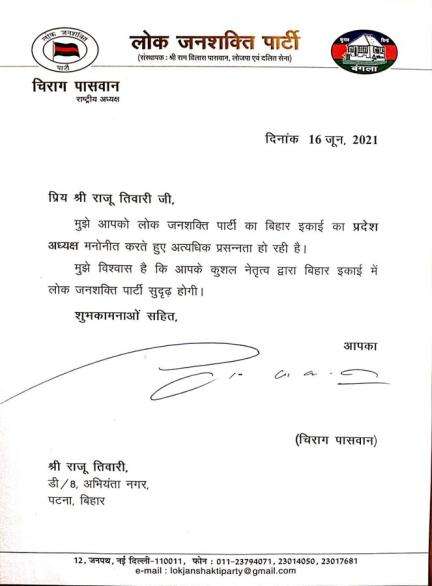 लोक जनशक्ति
पार्टी
लोक जनशक्ति पार्टी
(संस्थापक : श्री राम विलास पासवान, लोजपा एवं दलित सेना)
चुनाव चिन्ह
बंगला
चिराग पासवान
राष्ट्रीय अध्यक्ष
दिनांक 16 जून, 2021
प्रिय श्री राजू तिवारी जी,
मुझे आपको लोक जनशक्ति पार्टी का बिहार इकाई का प्रदेश
अध्यक्ष मनोनीत करते हुए अत्यधिक प्रसन्नता हो रही है।
मुझे विश्वास है कि आपके कुशल नेतृत्व द्वारा बिहार इकाई में
लोक जनशक्ति पार्टी सुदृढ़ होगी।
शुभकामनाओं सहित,
आपका
(चिराग पासवान)
श्री राजू तिवारी,
डी/8, अभियंता नगर,
पटना, बिहार
12, जनपथ, नई दिल्ली-110011, फोन : 011-23794071, 23014050, 23017681
e-mail : lokjanshaktiparty@gmail.com